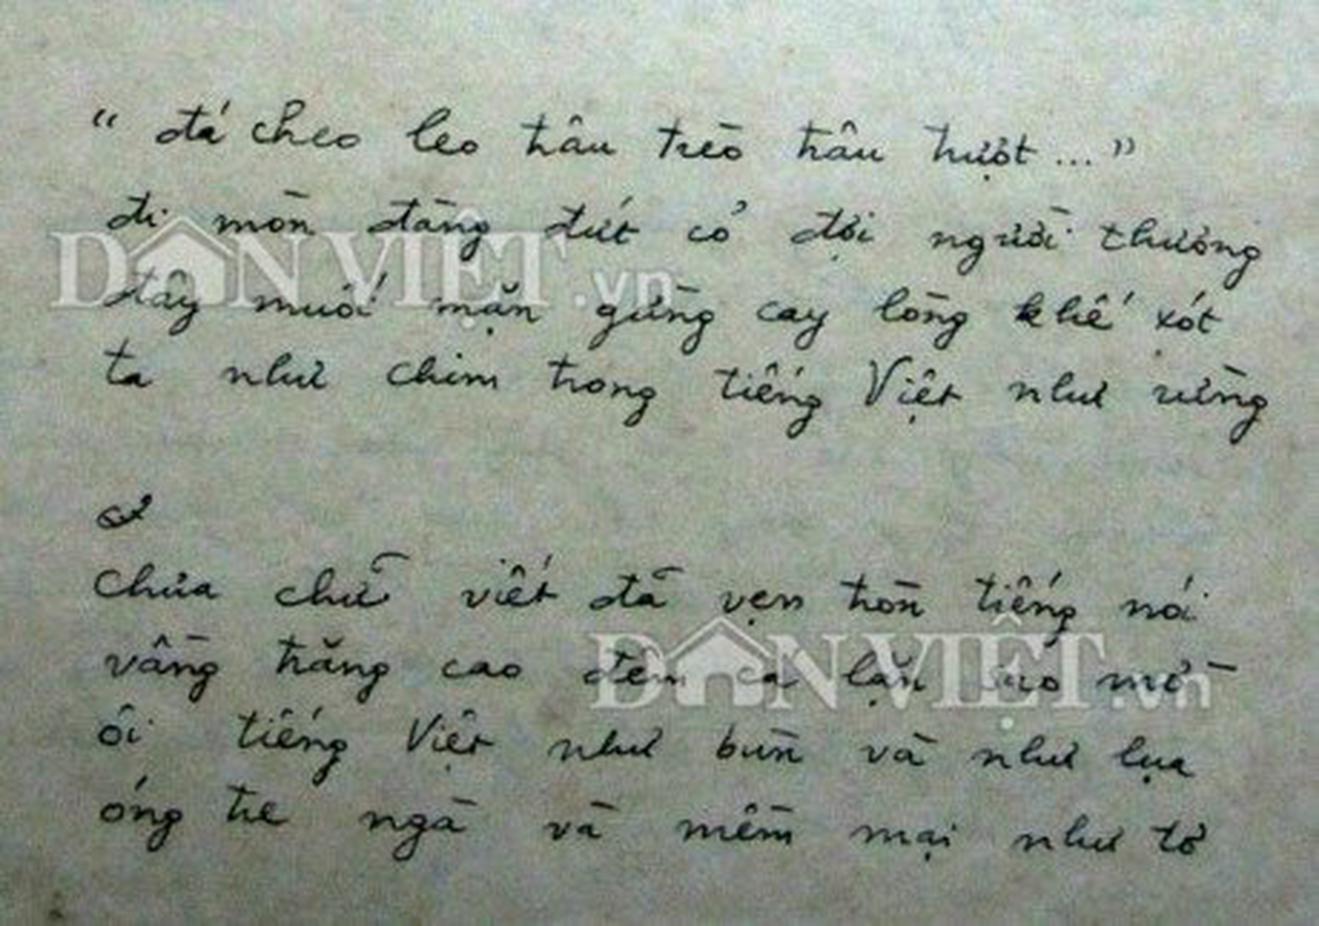 “ đá cheo leo trâu trèo trâu trượt ... ”
đi mòn đàng đứt cỏ đợi người thương
DÂN VIỆT.vn
đây muối mặn gừng cay lòng khế xót
ta như chim trong tiếng Việt như rừng
chưa chữ viết đã vẹn tròn tiếng nói
vầng trăng cao đêm cá lặn sao mờ
DÂN VIỆT.vn
ôi tiếng Việt như bùn và như lụa
óng tre ngà và mềm mại như tơ